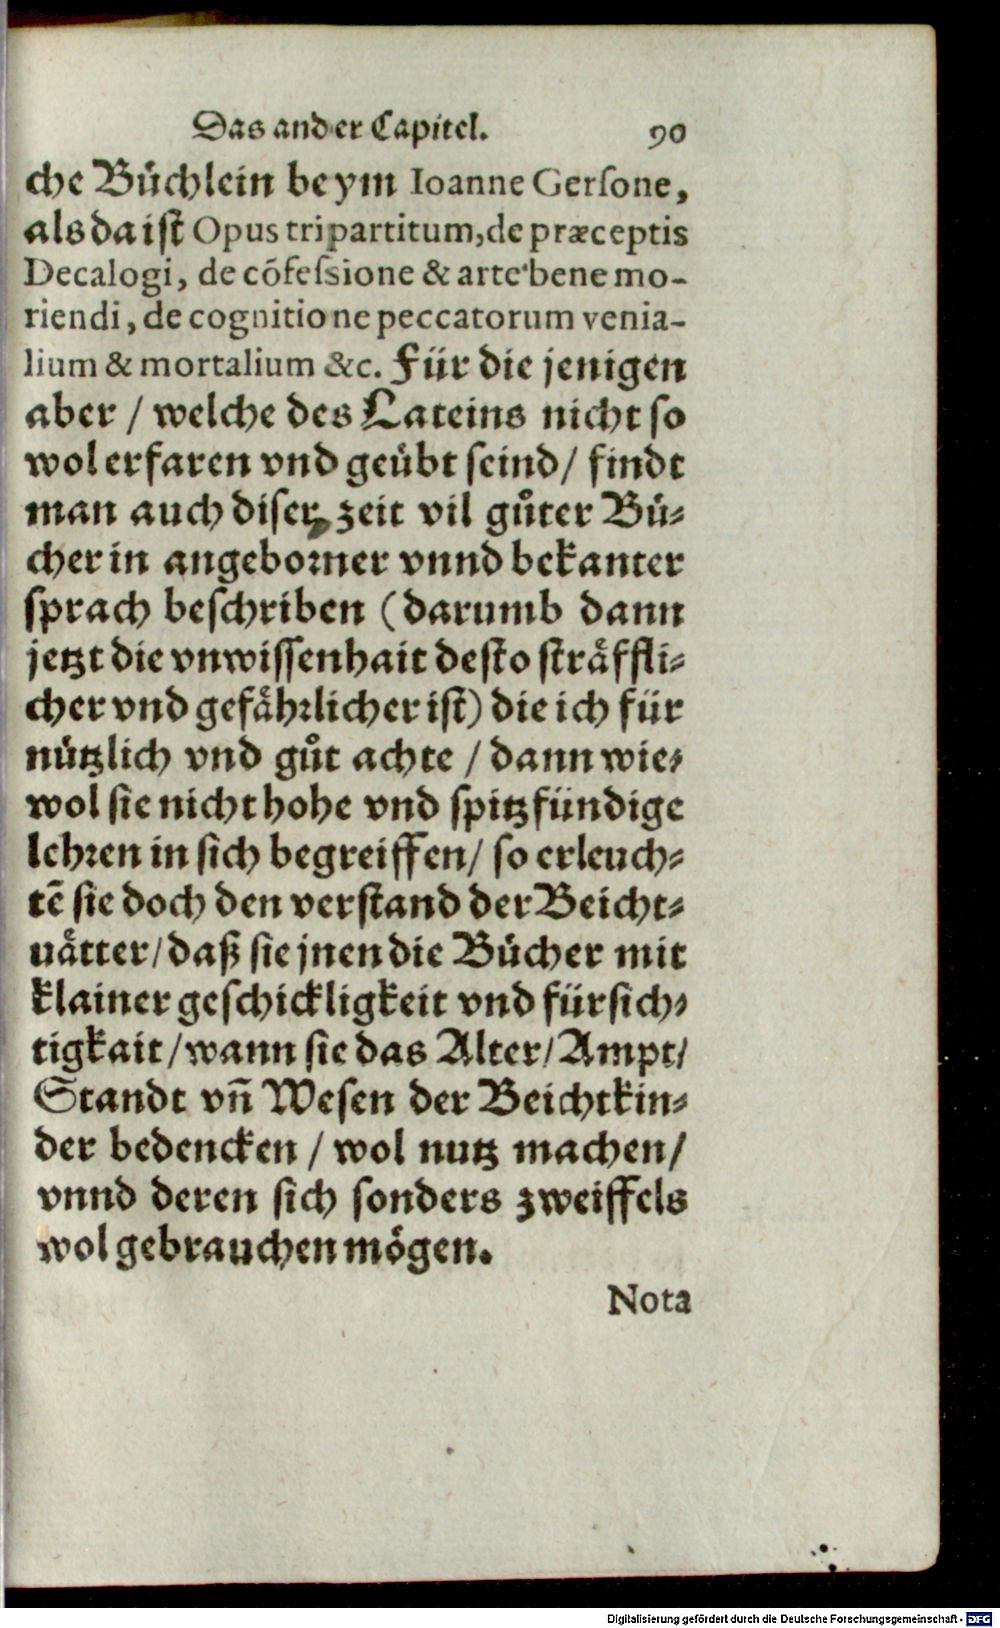 Das ander Capitel. 90
che Bůchlein beym Ioanne Gerſone,
als da iſt Opus tripartitum, de præceptis
Decalogi, de cõfeſsione & arte bene mo-
riendi, de cognitione peccatorum venia-
lium & mortalium &c. Für die jenigen
aber / welche des Lateins nicht ſo
wol erfaren vnd geuͤbt ſeind / findt
man auch diſer zeit vil gůter Buͤ-
cher in angeborner vnnd bekanter
ſprach beſchriben (darumb dann
jetzt die vnwiſſenhait deſto ſtraͤffli-
cher vnd gefaͤhrlicher iſt) die ich für
nuͤtzlich vnd gůt achte / dann wie-
wol ſie nicht hohe vnd ſpitzfündige
lehren in ſich begreiffen / ſo erleuch-
tẽ ſie doch den verſtand der Beicht-
uaͤtter / daß ſie jnen die Buͤcher mit
klainer geſchickligkeit vnd fürſich-
tigkait / wann ſie das Alter / Ampt /
Standt vñ Weſen der Beichtkin-
der bedencken / wol nutz machen /
vnnd deren ſich ſonders zweiffels
wol gebrauchen moͤgen.
Nota
Digitalisierung gefördert durch die Deutsche Forschungsgemeinschaft - DFG